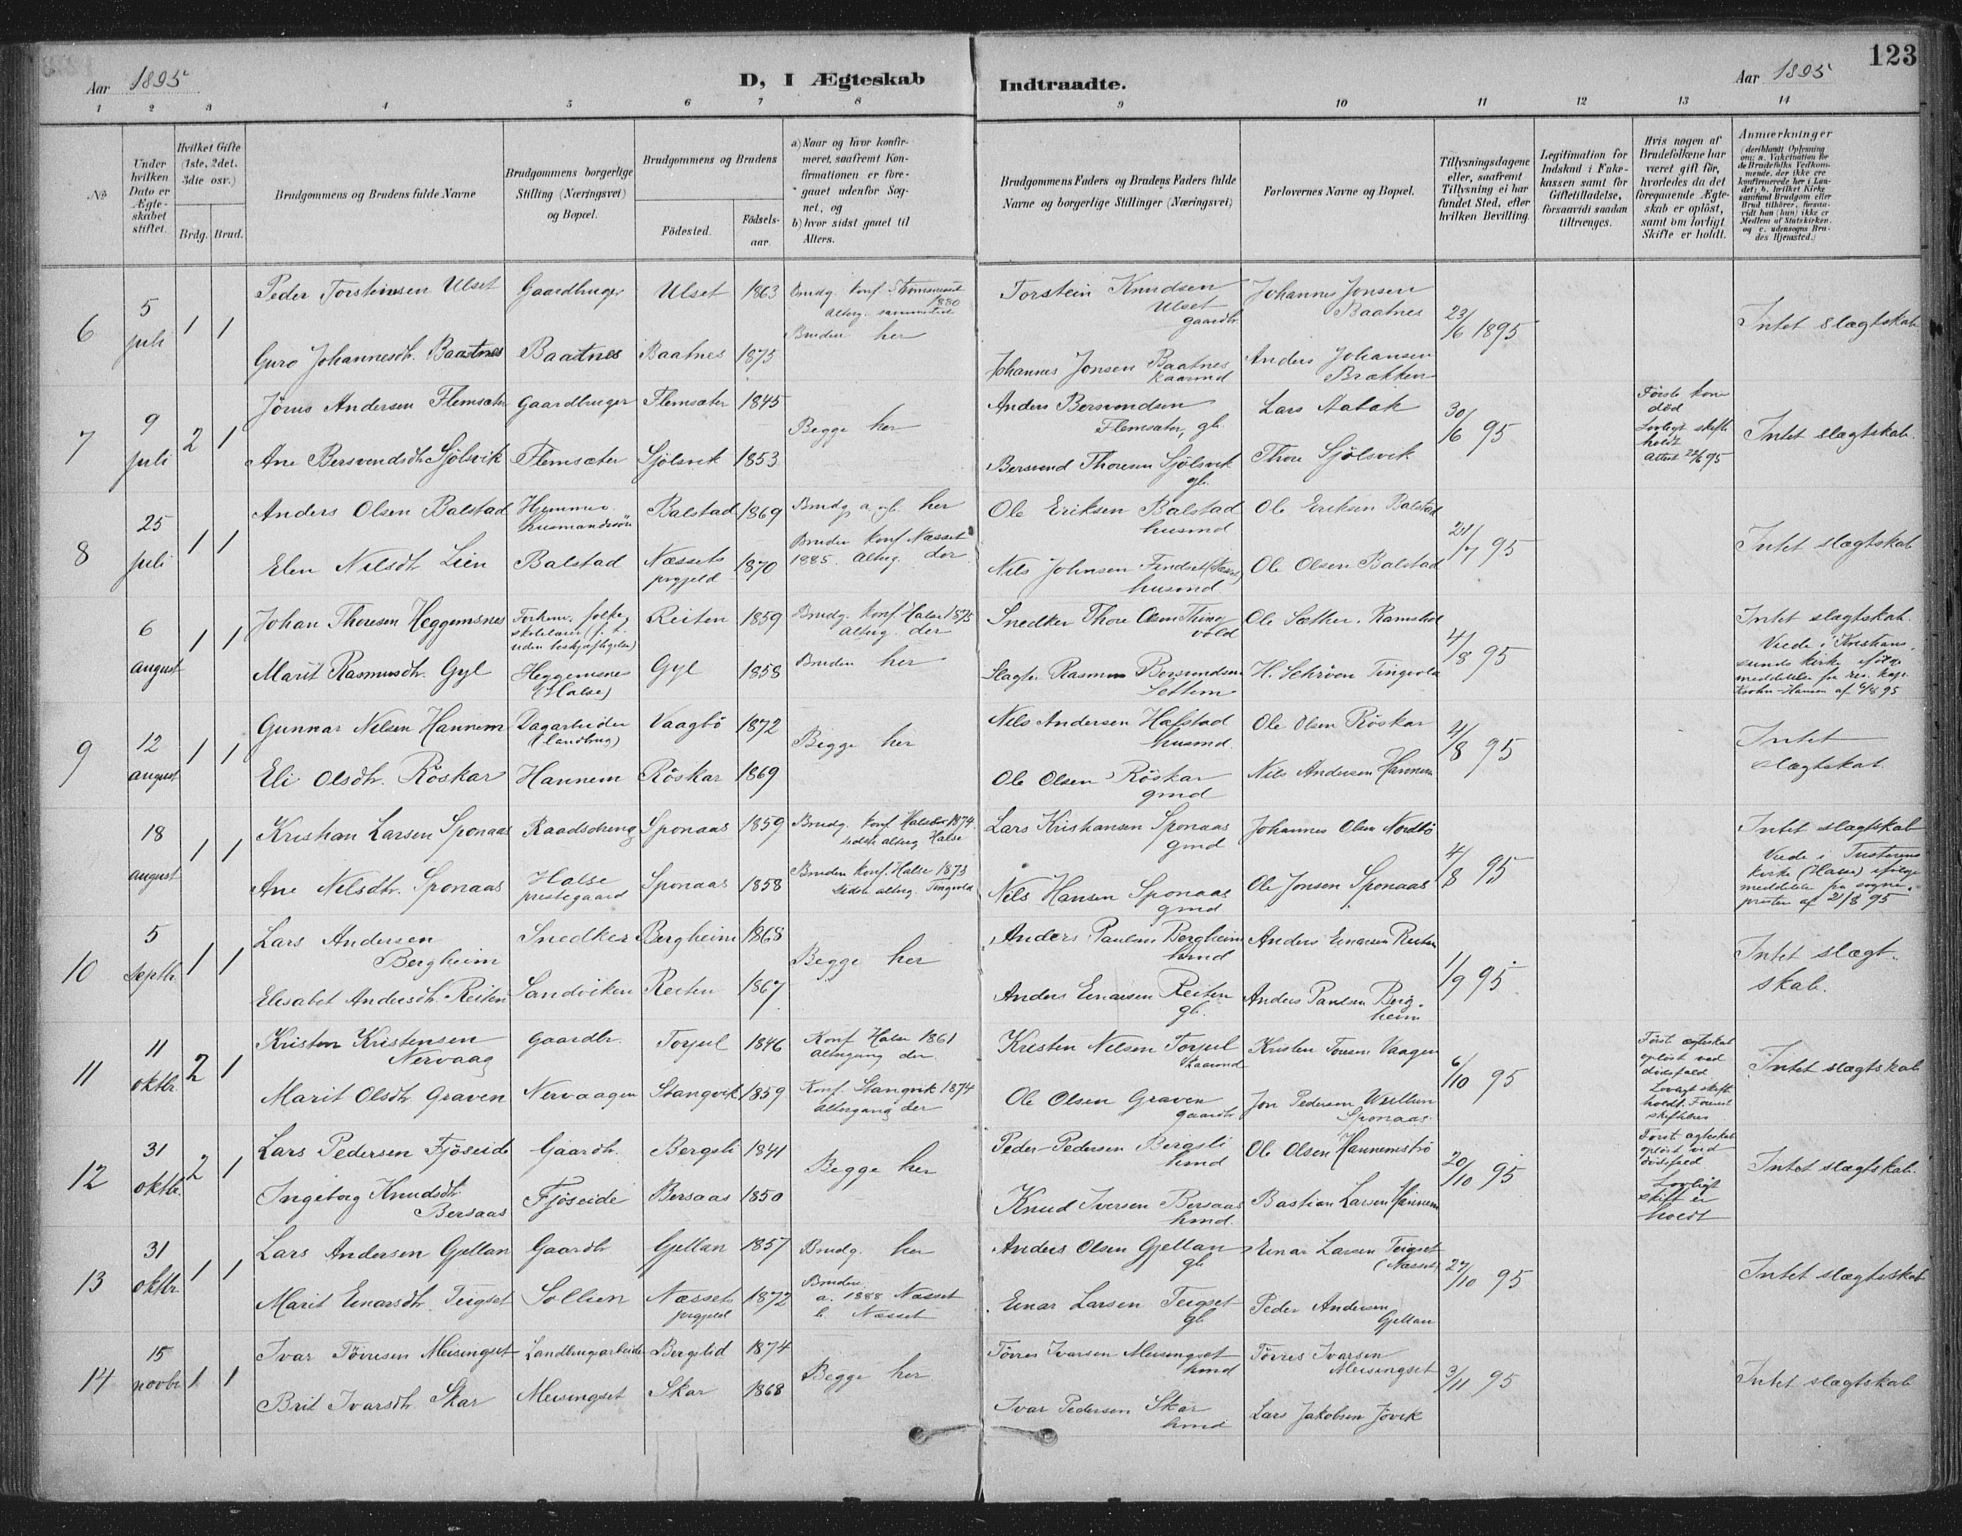 123
Aar 1895
D, I Ægteskab
Indtraadte.
Aar 1895
1 2 3 4 5 6 7 8 9 10 11 12 13 14
No
Under hvilken Dato er Ægteskabet stiftet.
Hvilket Gifte (1ste, 2det, 3die osv.)
Brdg. Brud.
Brudgommens og Brudens fulde Navne
Brudgommens borgerlige Stilling (Næringsvei) og Bopæl.
Brudgommens og Brudens
Födested.
Födselsaar.
a) Naar og hvor konfirmeret, saafremt Konfirmationen er foregaaet udenfor Sognet, og
b) hvor sidst gaaet til Alters.
Brudgommens Faders og Brudens Faders fulde Navne og borgerlige Stillinger (Næringsvei)
Forlovernes Navne og Bopæl.
Tillysningsdagene eller, saafremt Tillysning ei har fundet Sted, efter hvilken Bevilling.
Legitimation for Indskud i Enkekassen samt for Giftetilladelse, forsaavidt saadan tiltrænges.
Hvis nogen af Brudefolkene har været gift för, hvorledes da det foregaaende Ægteskab er oplöst, samt om lovligt Skifte er holdt.
Anmærkninger
(deriblandt Oplysning om: a. Vakcination for de Brudefolks Vedkommende, der ikke ere konfirmerede her i Landet; b. hvilket Kirkesamfund Brudgom eller Brud tilhörer, forsaavidt han (hun) ikke er Medlem af Statskirken, og c. udensogns Brudes Hjemsted.)
6 5 juli 1 1
Peder Torsteinsen Ulset Gaardbruger Ulset 1863 Brudg. konf. 1880 Alterg. sammested
Torstein Knudsen Ulset gaardbr. Johannes Jonsen Baatnes 23/6 1895 Intet slægtskab
Guro Johannesdtr. Baatnes Baatnes Baatnes 1875 Bruden her
Johannes Jonsen Baatnes kaarmd Anders Johansen Brækken
7 9 juli 2 1
Jörus Andersen Flemsæter Gaardbruger Flemsæter 1845 Begge her
Anders Bersvendsen Flemsæter, gb. Lars Aabak 30/6 95 Første kone død Lovligt skifte holdt Attest 22/6 95 Intet slægtskab.
Ane Bersvendsdtr. Sjölsvik Flemsæter Sjölsvik 1853
Bersvend Thoresen Sjölsvik gb. Thore Sjölsvik
8 25 juli 1 1
Anders Olsen Balstad Hjemmev. husmandssön Balstad 1869 Brudg a. og b. her
Ole Eriksen Balstad husmd Ole Eriksen Balstad 21/7 95 Intet slægtskab
Elen Nilsdtr Lien Balstad Næssets prgjeld 1870 Bruden konf. Næsset 1885. Alterg. der
Nils Johnsen husmd Ole Olsen Balstad
6 august 1 1
Johan Thoresen Heggemsnes Forhenv. folkeskolelærer (f. t. uden beskjæftigelse) Reiten 1859 Brudg. konf. Halse 1875 Alterg. der
Snedker Thore Olsen Thingvold Ole Sæther. Ramstad 4/8 95 Intet slægtskab. Viede i Kristianssunds kirke ifølge meddelelse fra res. kap. Krohn-Hansen af 6/8 95
Marit Rasmusdtr. Gyl Heggemsnes (Halse) Gyl 1858 Bruden her
Rasmus Bersvendsen Settem H. Schröen Tingvold
9 12 august 1 1
Gunnar Nilsen Hannem Dagarbeider (landbrug) Vaagbö 1872 Begge her
Nils Andersen Hafstad husmd. Ole Olsen Röskar 4/8 95 Intet slægtskab.
Eli Olsdtr. Röskar Hannem Röskar 1869
Ole Olsen Röskar gmd Nils Andersen Hannem
18 august 1 1
Kristian Larsen Sponaas Raadsdreng Sponaas 1859 Brudg. konf. Halse 1874. sidste alterg Halse
Lars Kristiansen Sponaas gmd Johannes Olsen Nordbö 4/8 95 Intet slægtskab Viede i Tusterens kirke (Halse) ifølge meddelelse fra sognepresten af 21/8 95
Ane Nilsdtr. Sponaas Halse prestegaard Sponaas 1858 Bruden konf. Halse 1873 Sidste alterg. Tingvold
Nils Hansen Sponaas gmd Ole Jonsen Sponaas
10 5 septbr. 1 1
Lars Andersen Bergheim Snedker Bergheim 1868 Begge her
Anders Paulsen Bergheim hmd Anders Einarsen Reiten 1/9 95. Intet slægtskab.
Elisabet Andersdtr. Reiten Sandviken Reiten 1867
Anders Einarsen Reiten gb. Anders Paulsen Bergheim
11 11 oktbr. 2 1
Kristen Kristensen Nervaag gaardbr. Torjul 1846 Konf Halse 1861 altergang der
Kristen Nilsen Torjul kaarmd Kristen Toresen Vaagen 6/10 95 Först ægteskab opløst ved dödsfald. Lovligt skifte holdt. Intet slægtskab
Marit Olsdtr Graven Nervaagen Stangvik 1859 Konf. Stangvik 1874 altergang der
Ole Olsen Graven gaardbr Jon Pedersen Sponaas.
12 31 oktbr. 2 1
Lars Pedersen Fjöseide Gaardbr. Bergsli 1841 Begge her
Peder Pedersen Bergsli hmd Ole Olsen Hannemsbö 20/10 95 Först ægteskab opløst ved dödsfald Lovligt skift er holdt Intet slægtskab.
Ingeborg Knudsdtr. Bersaas Fjöseide Bersaas 1850
Knud Iversen Bersaas hmd. Bastian Larsen Hannem
13 31 oktbr 1 1
Lars Andersen Gjellan Gaardbr Gjellan 1857 Brudg. her
Anders Olsen Gjellan gb Einar Larsen Teigset (Næsset) 27/10 95 Intet slægtskab
Marit Einarsdtr. Teigset Sollien Næssets prgjeld 1872 Bruden a. 1888 Næsset b. Næsset
Einar Larsen Teigset gb Peder Andersen Gjellan
14 15 novbr 1 1
Ivar Tövresen Meisingset Landbrugsarbeider Bergslid 1874 Begge her
Tövres Ivarsen Meisingset hmd Tövres Ivarsen Meisingset 3/11 95 Intet slægtskab
Brit Ivarsdtr Skar Meisingset Skar 1868
Ivar Pedersen Skar hmd Lars Jakobsen Jövik